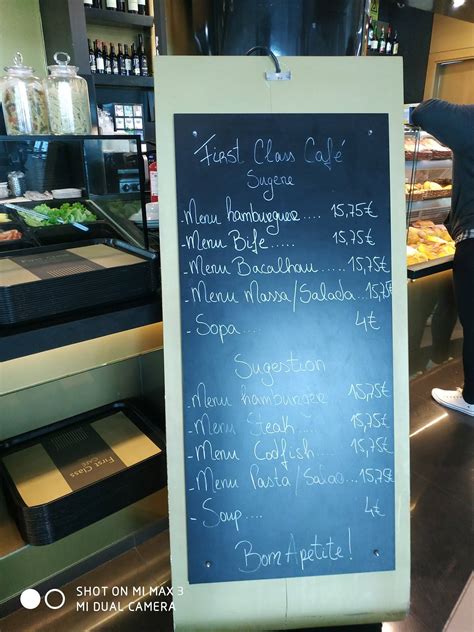 First Class Café
Sugere
- Menu hamburguer.... 15,75€
- Menu Bife..... 15,75€
- Menu Bacalhau..... 15,75€
- Menu Massa/Salada... 15,75€
- Sopa.... 4€
Sugestion
- Menu hamburguer 15,75€
- Menu Steak... 15,75€
- Menu Codfish.... 15,75€
- Menu Pasta/Salad... 15,75€
- Soup.... 4€
Bom Apetite!
First Class
CAFÉ
SHOT ON MI MAX 3
MI DUAL CAMERA